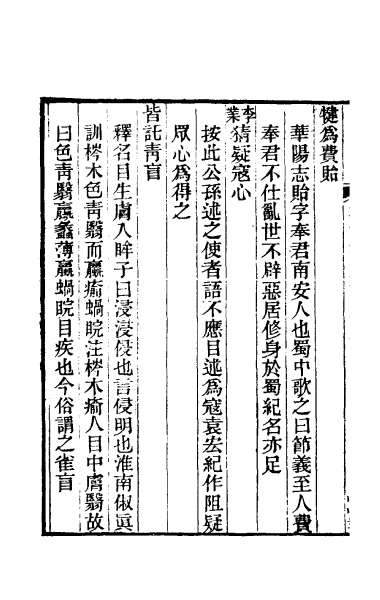 犍爲費貽
華陽志貽字奉君南安人也蜀中歌之曰節義至人費
奉君不仕亂世不辟惡居修身於蜀紀名亦足
李業
猜疑寇心
按此公孫述之使者語不應目述爲寇袁宏紀作阻疑
眾心爲得之
皆託靑盲
釋名目生膚入眸子曰浸浸侵也言侵明也淮南俶眞
訓梣木色靑翳而蠃瘉蝸睆注梣木瘉人目中膚翳故
曰色靑翳蠃蠡薄蠃蝸睆目疾也今俗謂之雀盲